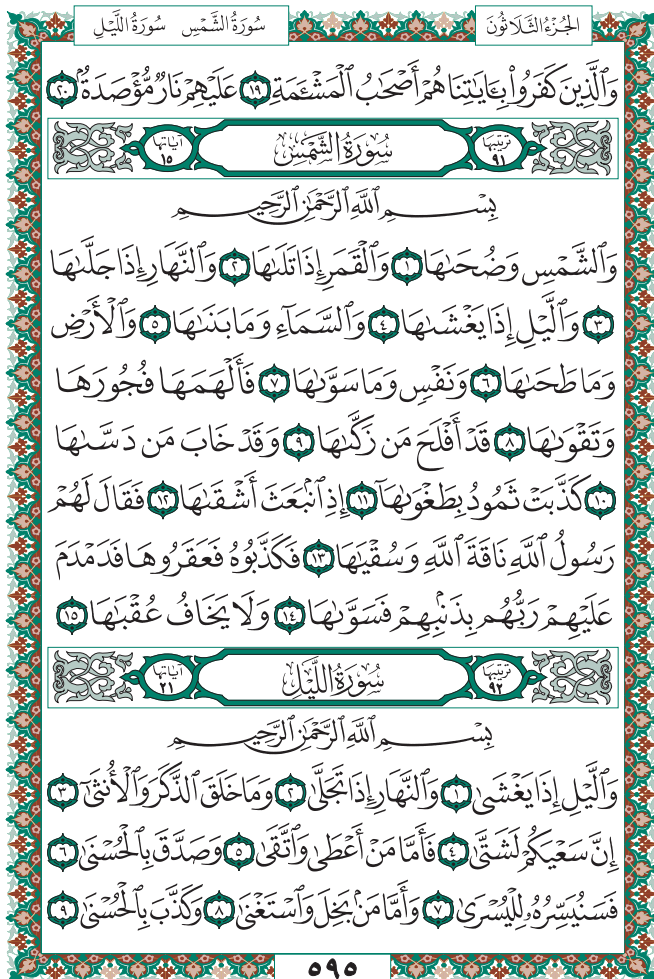 الجُزْءُ الثَّلَاثُونَ
سُورَةُ الشَّمْسِ سُورَةُ اللَّيْلِ
وَٱلَّذِينَ كَفَرُوا۟ بِـَٔايَـٰتِنَا هُمْ أَصْحَـٰبُ ٱلْمَشْـَٔمَةِ ١٩ عَلَيْهِمْ نَارٌ مُّؤْصَدَةٌۢ ٢٠
ترتيبها ٩١ سُورَةُ الشَّمْسِ آياتها ١٥
بِسْمِ ٱللَّهِ ٱلرَّحْمَـٰنِ ٱلرَّحِيمِ
وَٱلشَّمْسِ وَضُحَىٰهَا ١ وَٱلْقَمَرِ إِذَا تَلَىٰهَا ٢ وَٱلنَّهَارِ إِذَا جَلَّىٰهَا
٣ وَٱلَّيْلِ إِذَا يَغْشَىٰهَا ٤ وَٱلسَّمَآءِ وَمَا بَنَىٰهَا ٥ وَٱلْأَرْضِ
وَمَا طَحَىٰهَا ٦ وَنَفْسٍ وَمَا سَوَّىٰهَا ٧ فَأَلْهَمَهَا فُجُورَهَا
وَتَقْوَىٰهَا ٨ قَدْ أَفْلَحَ مَن زَكَّىٰهَا ٩ وَقَدْ خَابَ مَن دَسَّىٰهَا
١٠ كَذَّبَتْ ثَمُودُ بِطَغْوَىٰهَآ ١١ إِذِ ٱنۢبَعَثَ أَشْقَىٰهَا ١٢ فَقَالَ لَهُمْ
رَسُولُ ٱللَّهِ نَاقَةَ ٱللَّهِ وَسُقْيَـٰهَا ١٣ فَكَذَّبُوهُ فَعَقَرُوهَا فَدَمْدَمَ
عَلَيْهِمْ رَبُّهُم بِذَنۢبِهِمْ فَسَوَّىٰهَا ١٤ وَلَا يَخَافُ عُقْبَـٰهَا ١٥
ترتيبها ٩٢ سُورَةُ اللَّيْلِ آياتها ٢١
بِسْمِ ٱللَّهِ ٱلرَّحْمَـٰنِ ٱلرَّحِيمِ
وَٱلَّيْلِ إِذَا يَغْشَىٰ ١ وَٱلنَّهَارِ إِذَا تَجَلَّىٰ ٢ وَمَا خَلَقَ ٱلذَّكَرَ وَٱلْأُنثَىٰٓ ٣
إِنَّ سَعْيَكُمْ لَشَتَّىٰ ٤ فَأَمَّا مَنْ أَعْطَىٰ وَٱتَّقَىٰ ٥ وَصَدَّقَ بِٱلْحُسْنَىٰ ٦
فَسَنُيَسِّرُهُۥ لِلْيُسْرَىٰ ٧ وَأَمَّا مَنۢ بَخِلَ وَٱسْتَغْنَىٰ ٨ وَكَذَّبَ بِٱلْحُسْنَىٰ ٩
٥٩٥